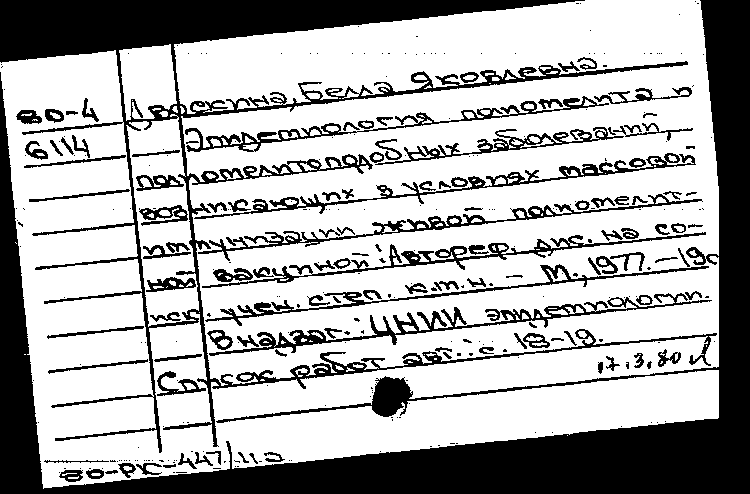 80-4 Двоскина, Белла Яковлевна.
6114 Эпидемиология полиомелита и
полиомелитоподобных заболеваний,
возникающих в условиях массовой
иммунизации живой полиомелит-
ной вакциной: Автореф. дис. на со-
иск. учен. степ. к.м.н. - М., 1977. - 19с
В надзаг.: ЦНИИ эпидемиологии.
Список работ авт.: с. 18-19.
17.3.80
80-РК-447/11